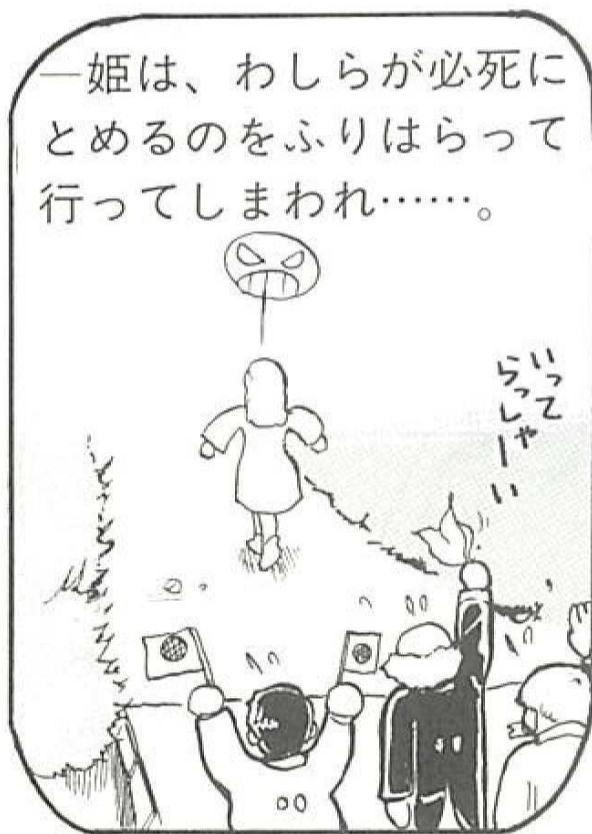 ―姫は、わしらが必死に
とめるのをふりはらって
行ってしまわれ……。
いって
らっしゃーい